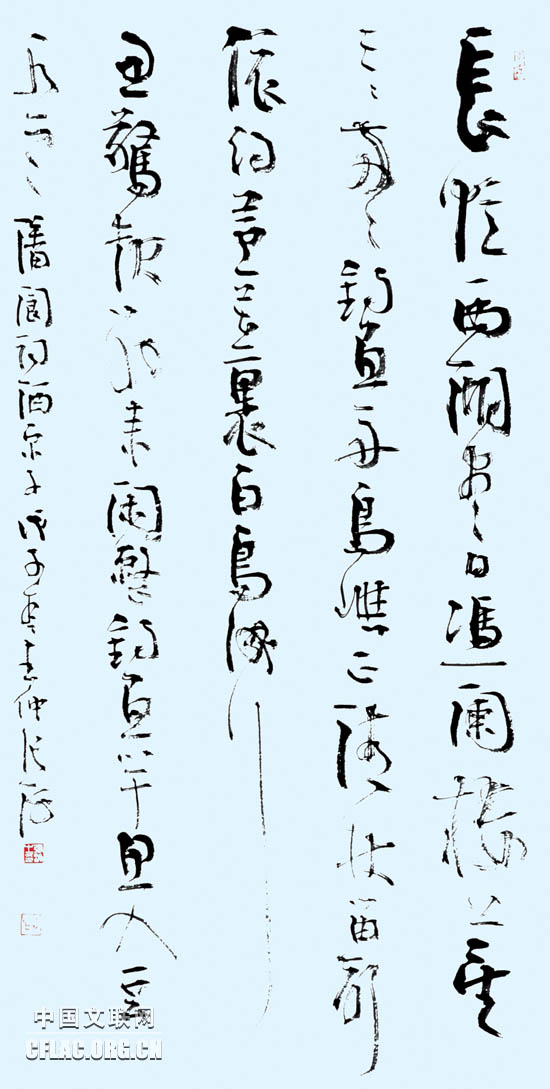 長憶西湖盡日馮闌樓上望
三々兩々釣魚舟島嶼正清秋笛聲
依約蘆花裏白鳥成行
忽驚起別來閑整釣魚竿思入雲
水寒 潘閬詞酒泉子戊子
中国文联网
CFLAC.ORG.CN